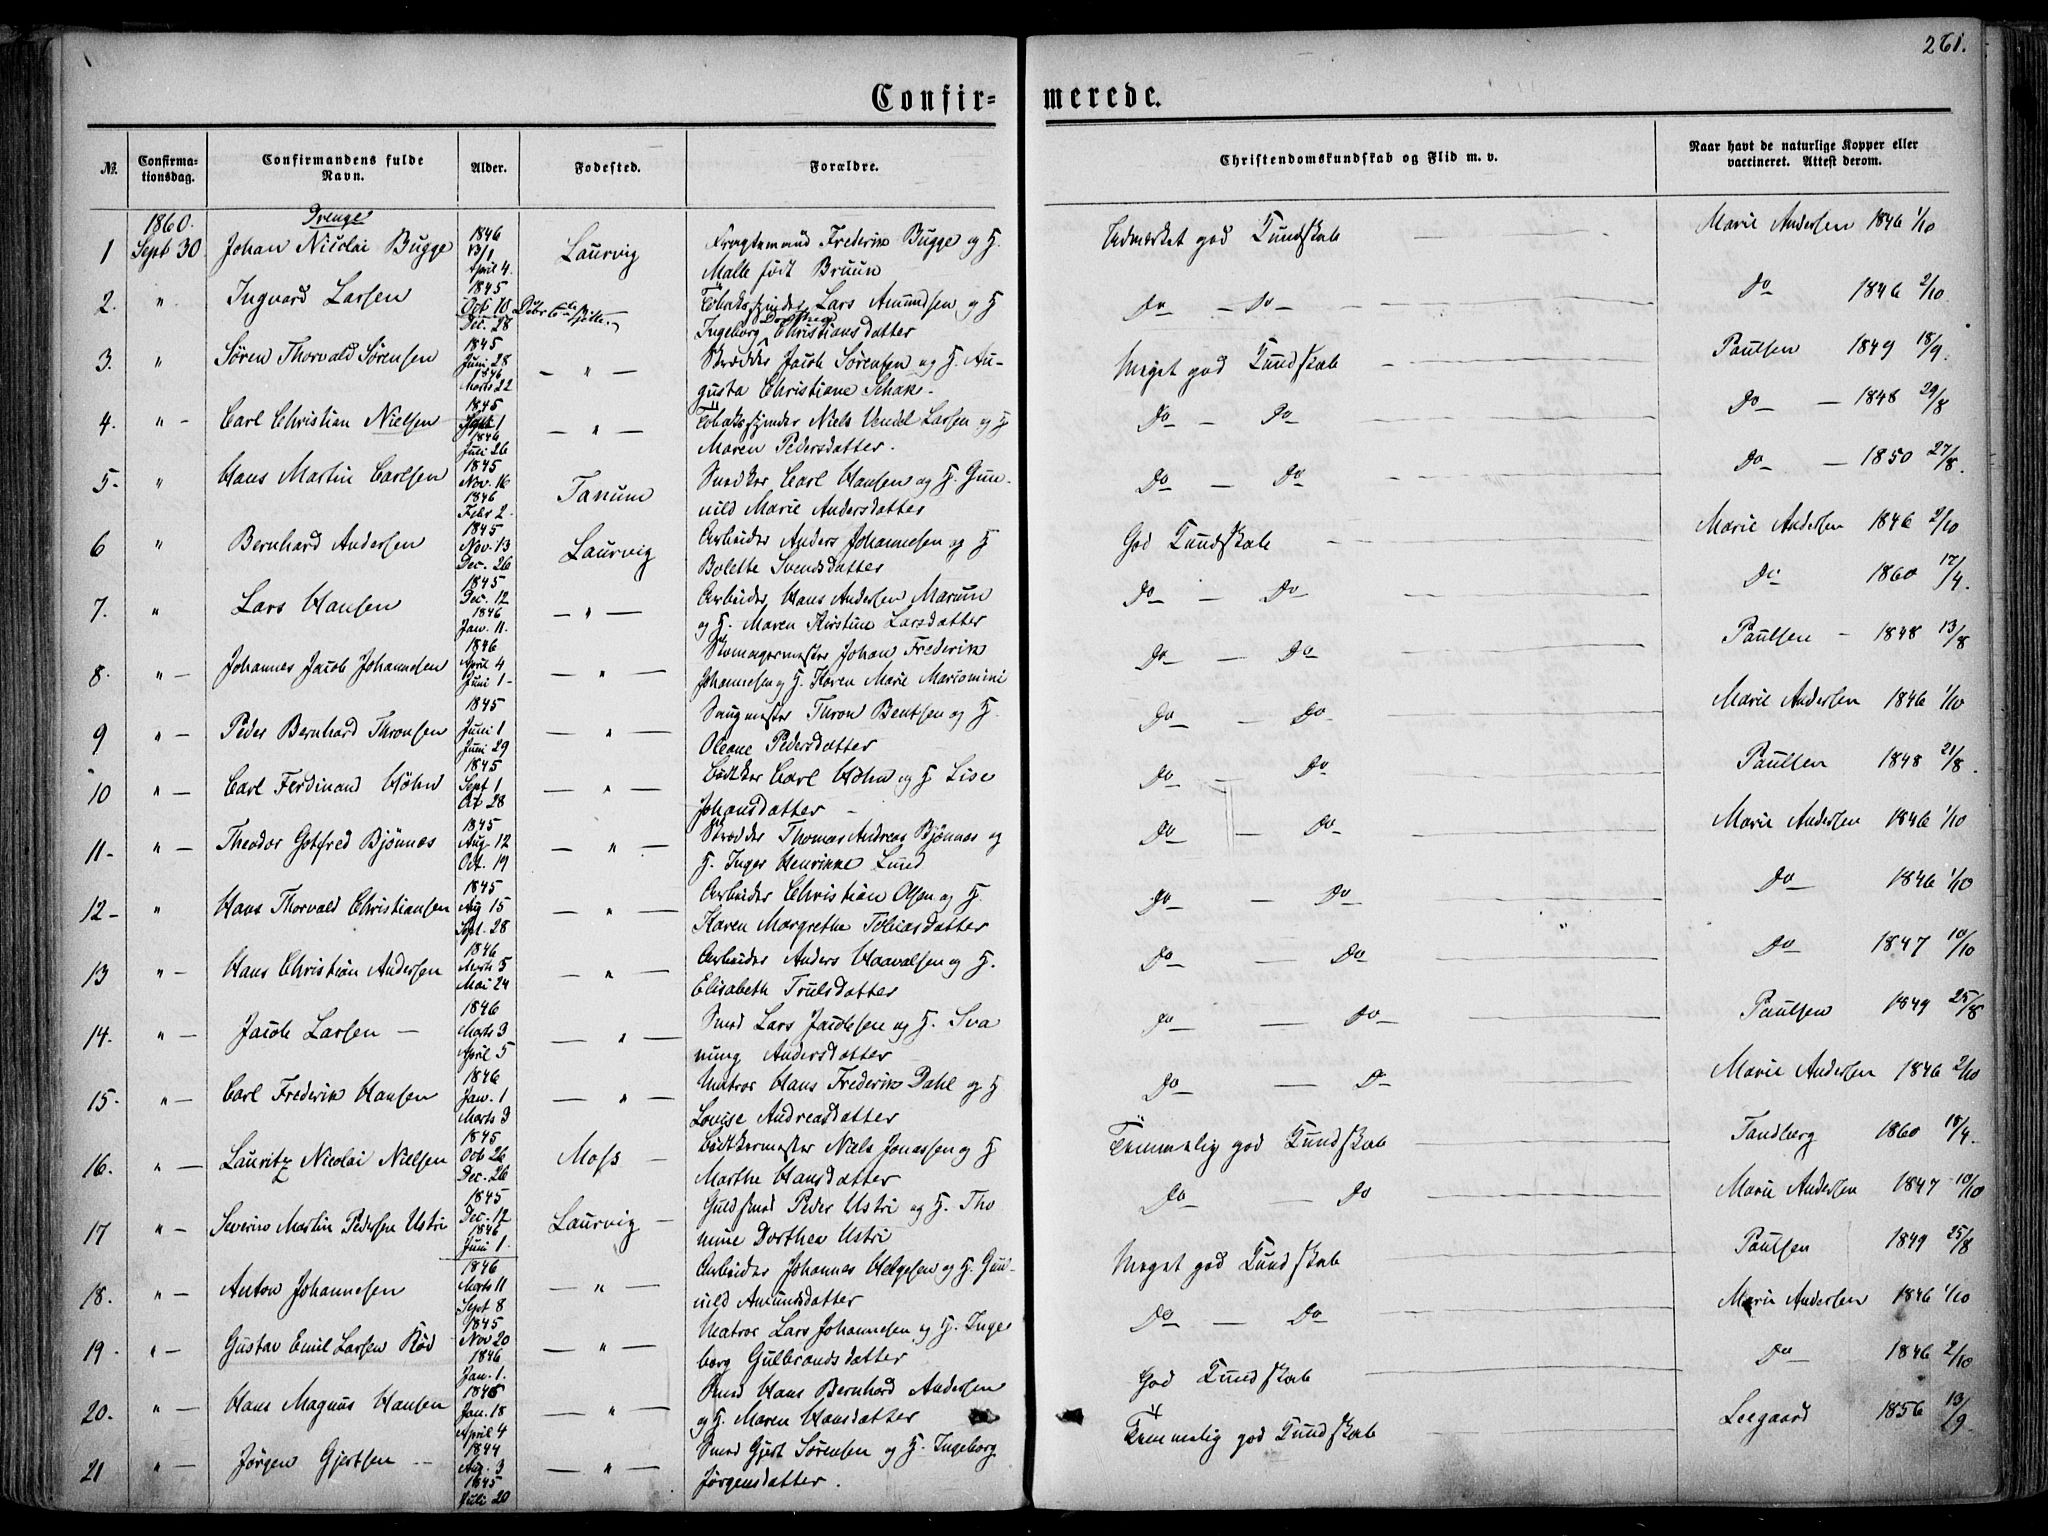 261.
Confir= merede.
№. Confirma-tionsdag. Confirmandens fulde Navn. Alder. Fødested. Forældre. Christendomskundskab og Flid m. v. Naar havt de naturlige Kopper eller vaccineret. Attest derom.
1860. Drenge 1846
1 Sept 30 Johan Nicolai Bugge 13/1 Laurvig Fragtemand Frederik Bugge og H. Udmærket god Kundskab — Marie Andersen 1846 1/10
April 4. Malle født Bruun
2. " Ingvard Larsen 1845 Tobaksspinder Lars Amundsen og H Do — Do — Do 1846 2/10
Oct 10 Dec. 28 Ingeborg Dorthea Christiansdatter
3. " Søren Thorvald Sørensen 1845 Juni 28 — " — Skrædder Jacob Sørensen og H. Au- Meget god Kundskab — Paulsen 1849 18/9.
1846 Marts 22 gusta Christiane Schak.
4. " — Carl Christian Nielsen 1845 Sept 1 — " — Tobaksspinder Niels Vendel Larsen og H Do — Do — Do — 1848 29/8
1846 Juli 26 Maren Pedersdatter.
5. " Hans Martin Carlsen 1845 Nov. 16 Tanum Snedker Carl Hansen og H. Gun- Do — Do — Do — 1850 27/8.
1846 Febr 2. nild Marie Andersdatter
6 " Bernhard Andersen 1845 Nov. 13 Laurvig Arbeider Anders Johannesen og H God Kundskab — Marie Andersen 1846 2/10
Dec. 26 Bolette Svendsdatter
7. " Lars Hansen 1845 Dec. 12 — " — Arbeider Hans Andersen Marum Do — Do — Do 1860 17/4.
1846 Jan. 11. og H. Maren Kirstine Larsdatter
8. " — Johannes Jacob Johannesen 1846 April 4 — " — Skomagermester Johan Frederik Do — Do — Paulsen — 1848 13/8
Juni 1 — Johannesen og H. Karen Marie Mariomini
9 " — Peder Bernhard Thronsen 1845 Juni 1 — " — Saugmester Thron Bentsen og H. Do — Do — Marie Andersen 1846 1/10
Juni 29 Oleane Pedersdatter
10 " — Carl Ferdinand Høhn 1845 Sept 1 — " — Bødtker Carl Høhn og H. Lise Do — Do — Paulsen 1848 21/8.
Oct 28 Johansdatter —
11 — " — Theodor Gotfred Bjønnes 1845 Aug. 12 — " — Skrædder Thomas Andreas Bjønnes og Do — Do — Marie Andersen 1846 1/10
Oct. 19 H. Inger Henrikke Lund
12 — " Hans Thorvald Christiansen 1845 Aug 15 — " — Arbeider Christian Olsen og H. Do — Do — Do 1846 1/10
Sept. 28 Karen Margrethe Tobiasdatter
13 " — Hans Christian Andersen 1846 Marts 5 — " — Arbeider Anders Haavalsen og H. Do — Do — Do 1847 10/10
Mai 24 Elisabeth Trulsdatter
14. " — Jacob Larsen — 1846 Marts 3 — " — Smed Lars Jacobsen og H. Sva Do — Do — Paulsen 1849 25/8
April 5 nung Andersdatter
15. " — Carl Frederik Hansen 1846 Jan. 1 — " — Matros Hans Frederik Dahl og H Do — Do — Marie Andersen 1846 2/10
Marts 3 Louise Andreasdatter
16. " — Lauritz Nicolai Nielsen 1845 Oct 26 Moss — Bødtkermester Niels Jonassen og H Temmelig god Kundskab — Tandberg 1860 18/4.
Dec. 26 Marthe Hansdatter
17 " — Severin Martin Pedersen Ustri 1845 Dec. 12 Laurvig — Guldsmed Peder Ustri og H. Tho Do — Do — Marie Andersen 1847 10/10
1846 Juni 1. mine Dorthea Ustri
18. " — Anton Johannesen 1846 Marts 11 — " — Arbeider Johannes Helgesen og H. Gun- Meget god Kundskab — Paulsen 1849 25/8
Sept 8 nild Amundsdatter
19. " — Gustav Emil Larsen Rød 1845 Nov 20 — " — Matros Lars Johannesen og H. Inge Do — Do — Marie Andersen 1846 1/10
1846 Jan. 1. borg Gulbrandsdatter
20. " — Hans Magnus Hansen 1846 Jan. 18 — " — Smed Hans Bernhard Andersen God Kundskab — Do 1846 2/10
April 4 og H. Maren Hansdatter
21 " — Jørgen Gjertsen — 1844 Aug. 3 — " — Smed Gjert Sørensen og H. Ingeborg Temmelig god Kundskab Leegaard 1856 13/9.
1845 Juli 20 Jørgensdatter.